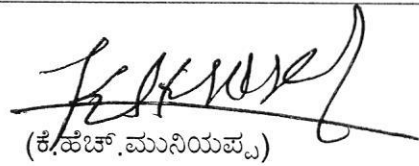 (ಕೆ.ಹೆಚ್.ಮುನಿಯಪ್ಪ)